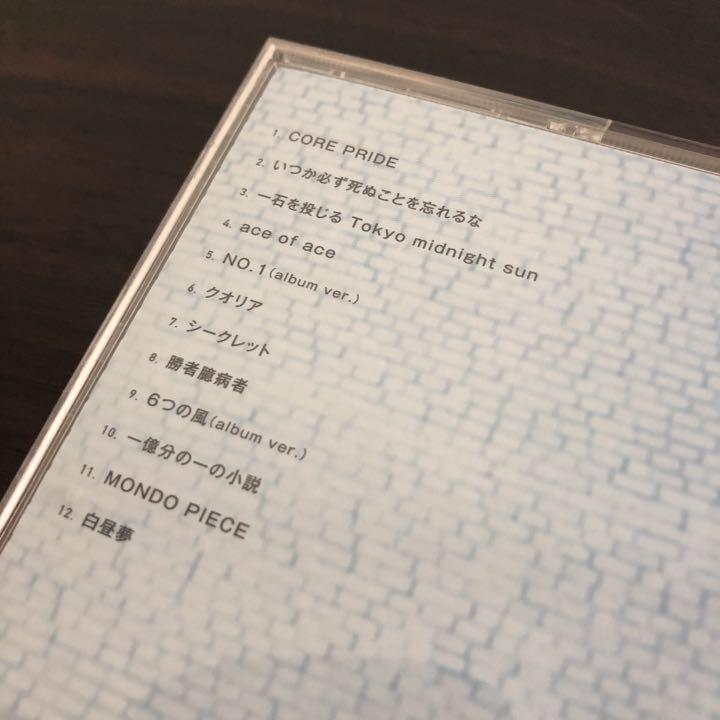 1. CORE PRIDE
2. いつか必ず死ぬことを忘れるな
3. 一石を投じる Tokyo midnight sun
4. ace of ace
5. NO.1(album ver.)
6. クオリア
7. シークレット
8. 勝者臆病者
9. 6つの風(album ver.)
10. 一億分の一の小説
11. MONDO PIECE
12. 白昼夢